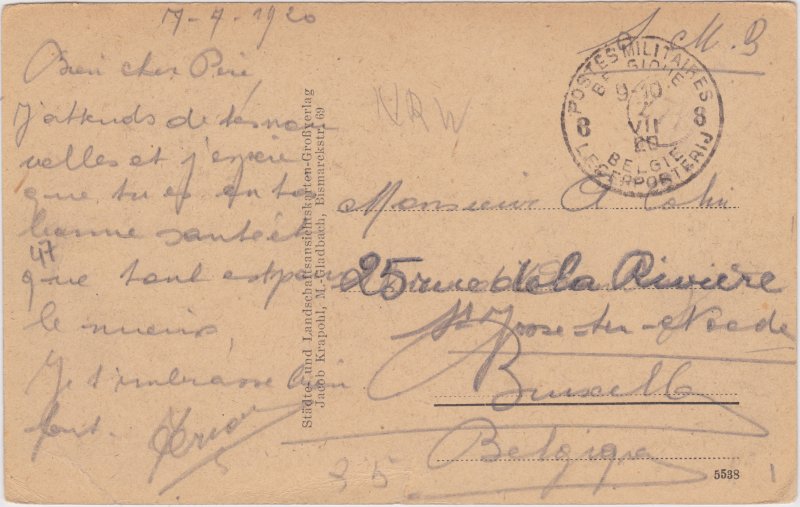 7-7-1920
Bien cher Père,
J'attends de tes nou
velles et j'espère
que tu es en très
bonne santé et
que tout est pour
le mieux,
Je t'embrasse bien
fort.
47
Städte- und Landschaftsansichtskarten-Großverlag
Jacob Krapohl, M.-Gladbach, Bismarckstr. 69
NRW
S. M. B
POSTES MILITAIRES
BELGIQUE
9-10
7
VII
20
8 8
BELGIE
LEGERPOSTERIJ
Monsieur A Cahn
25 rue de la Rivière
St Josse-ten-Noode
Bruxelles
Belgique
35
5538
1